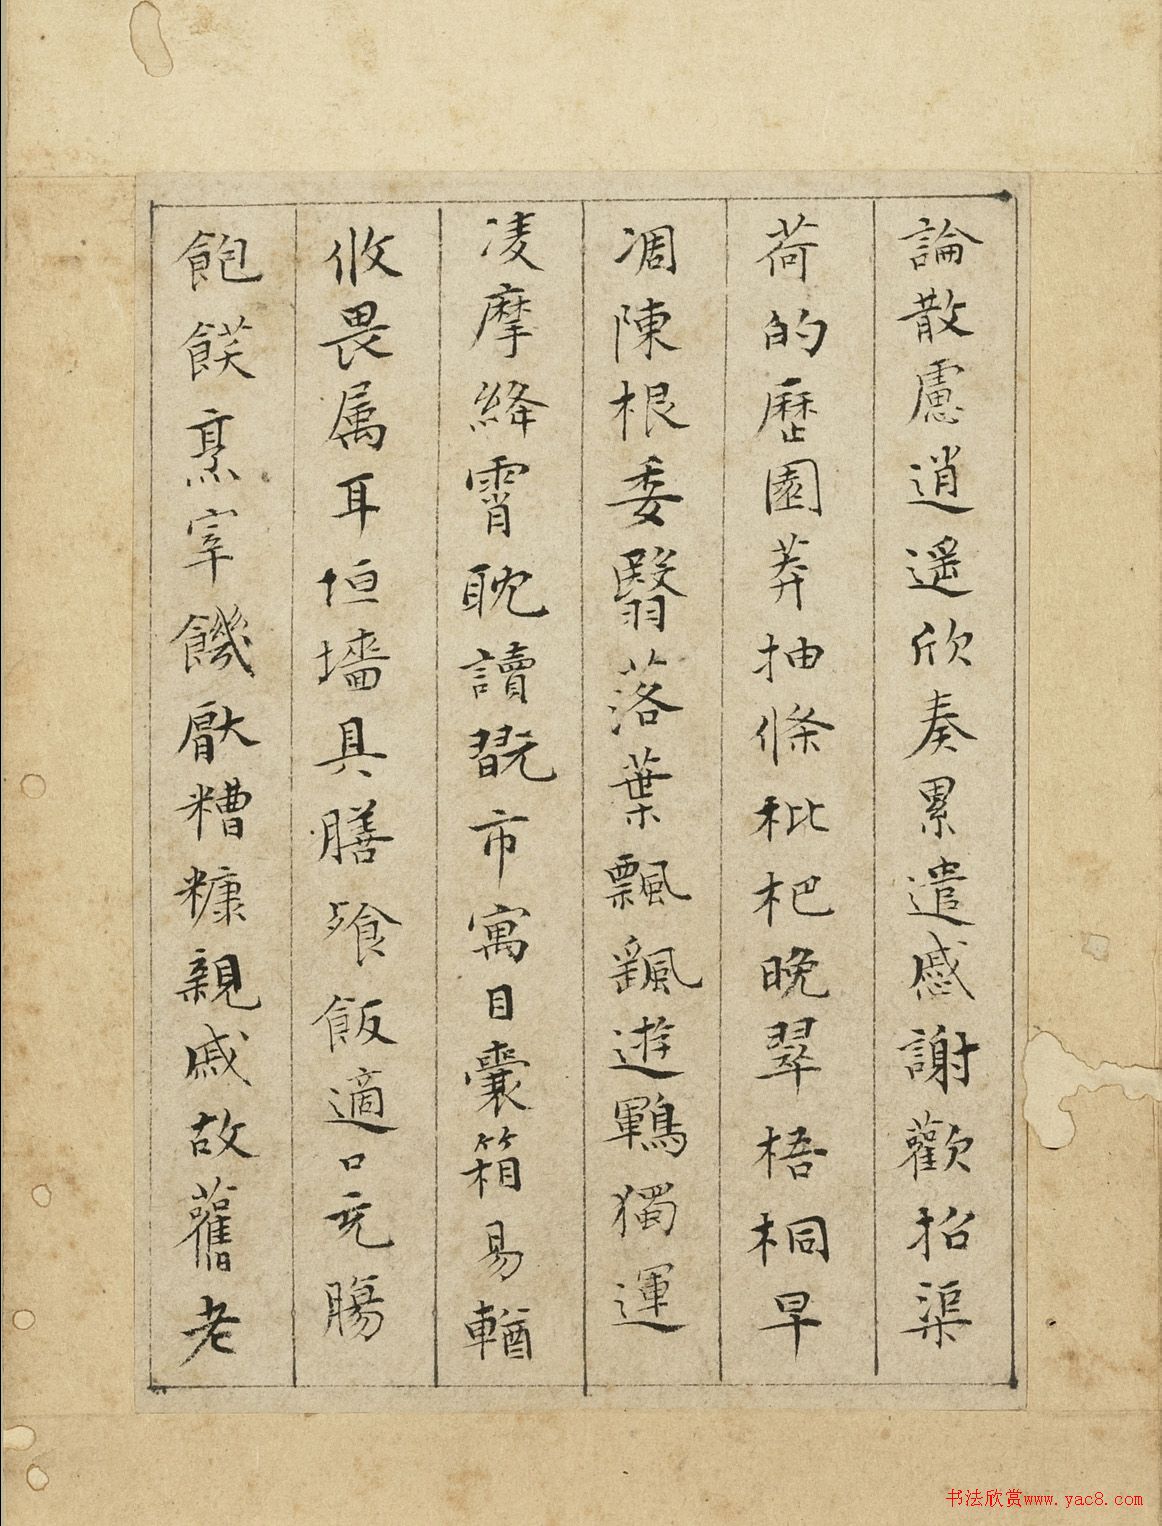 論散慮逍遙欣奏累遣慼謝歡招渠
荷的歷園莽抽條枇杷晚翠梧桐早
凋陳根委翳落葉飄颻遊鵾獨運
凌摩絳霄耽讀翫市寓目囊箱易輶
攸畏属耳垣墻具膳飱飯適口充腸
飽飫烹宰饑厭糟糠親戚故舊老
书法欣赏www.yac8.com